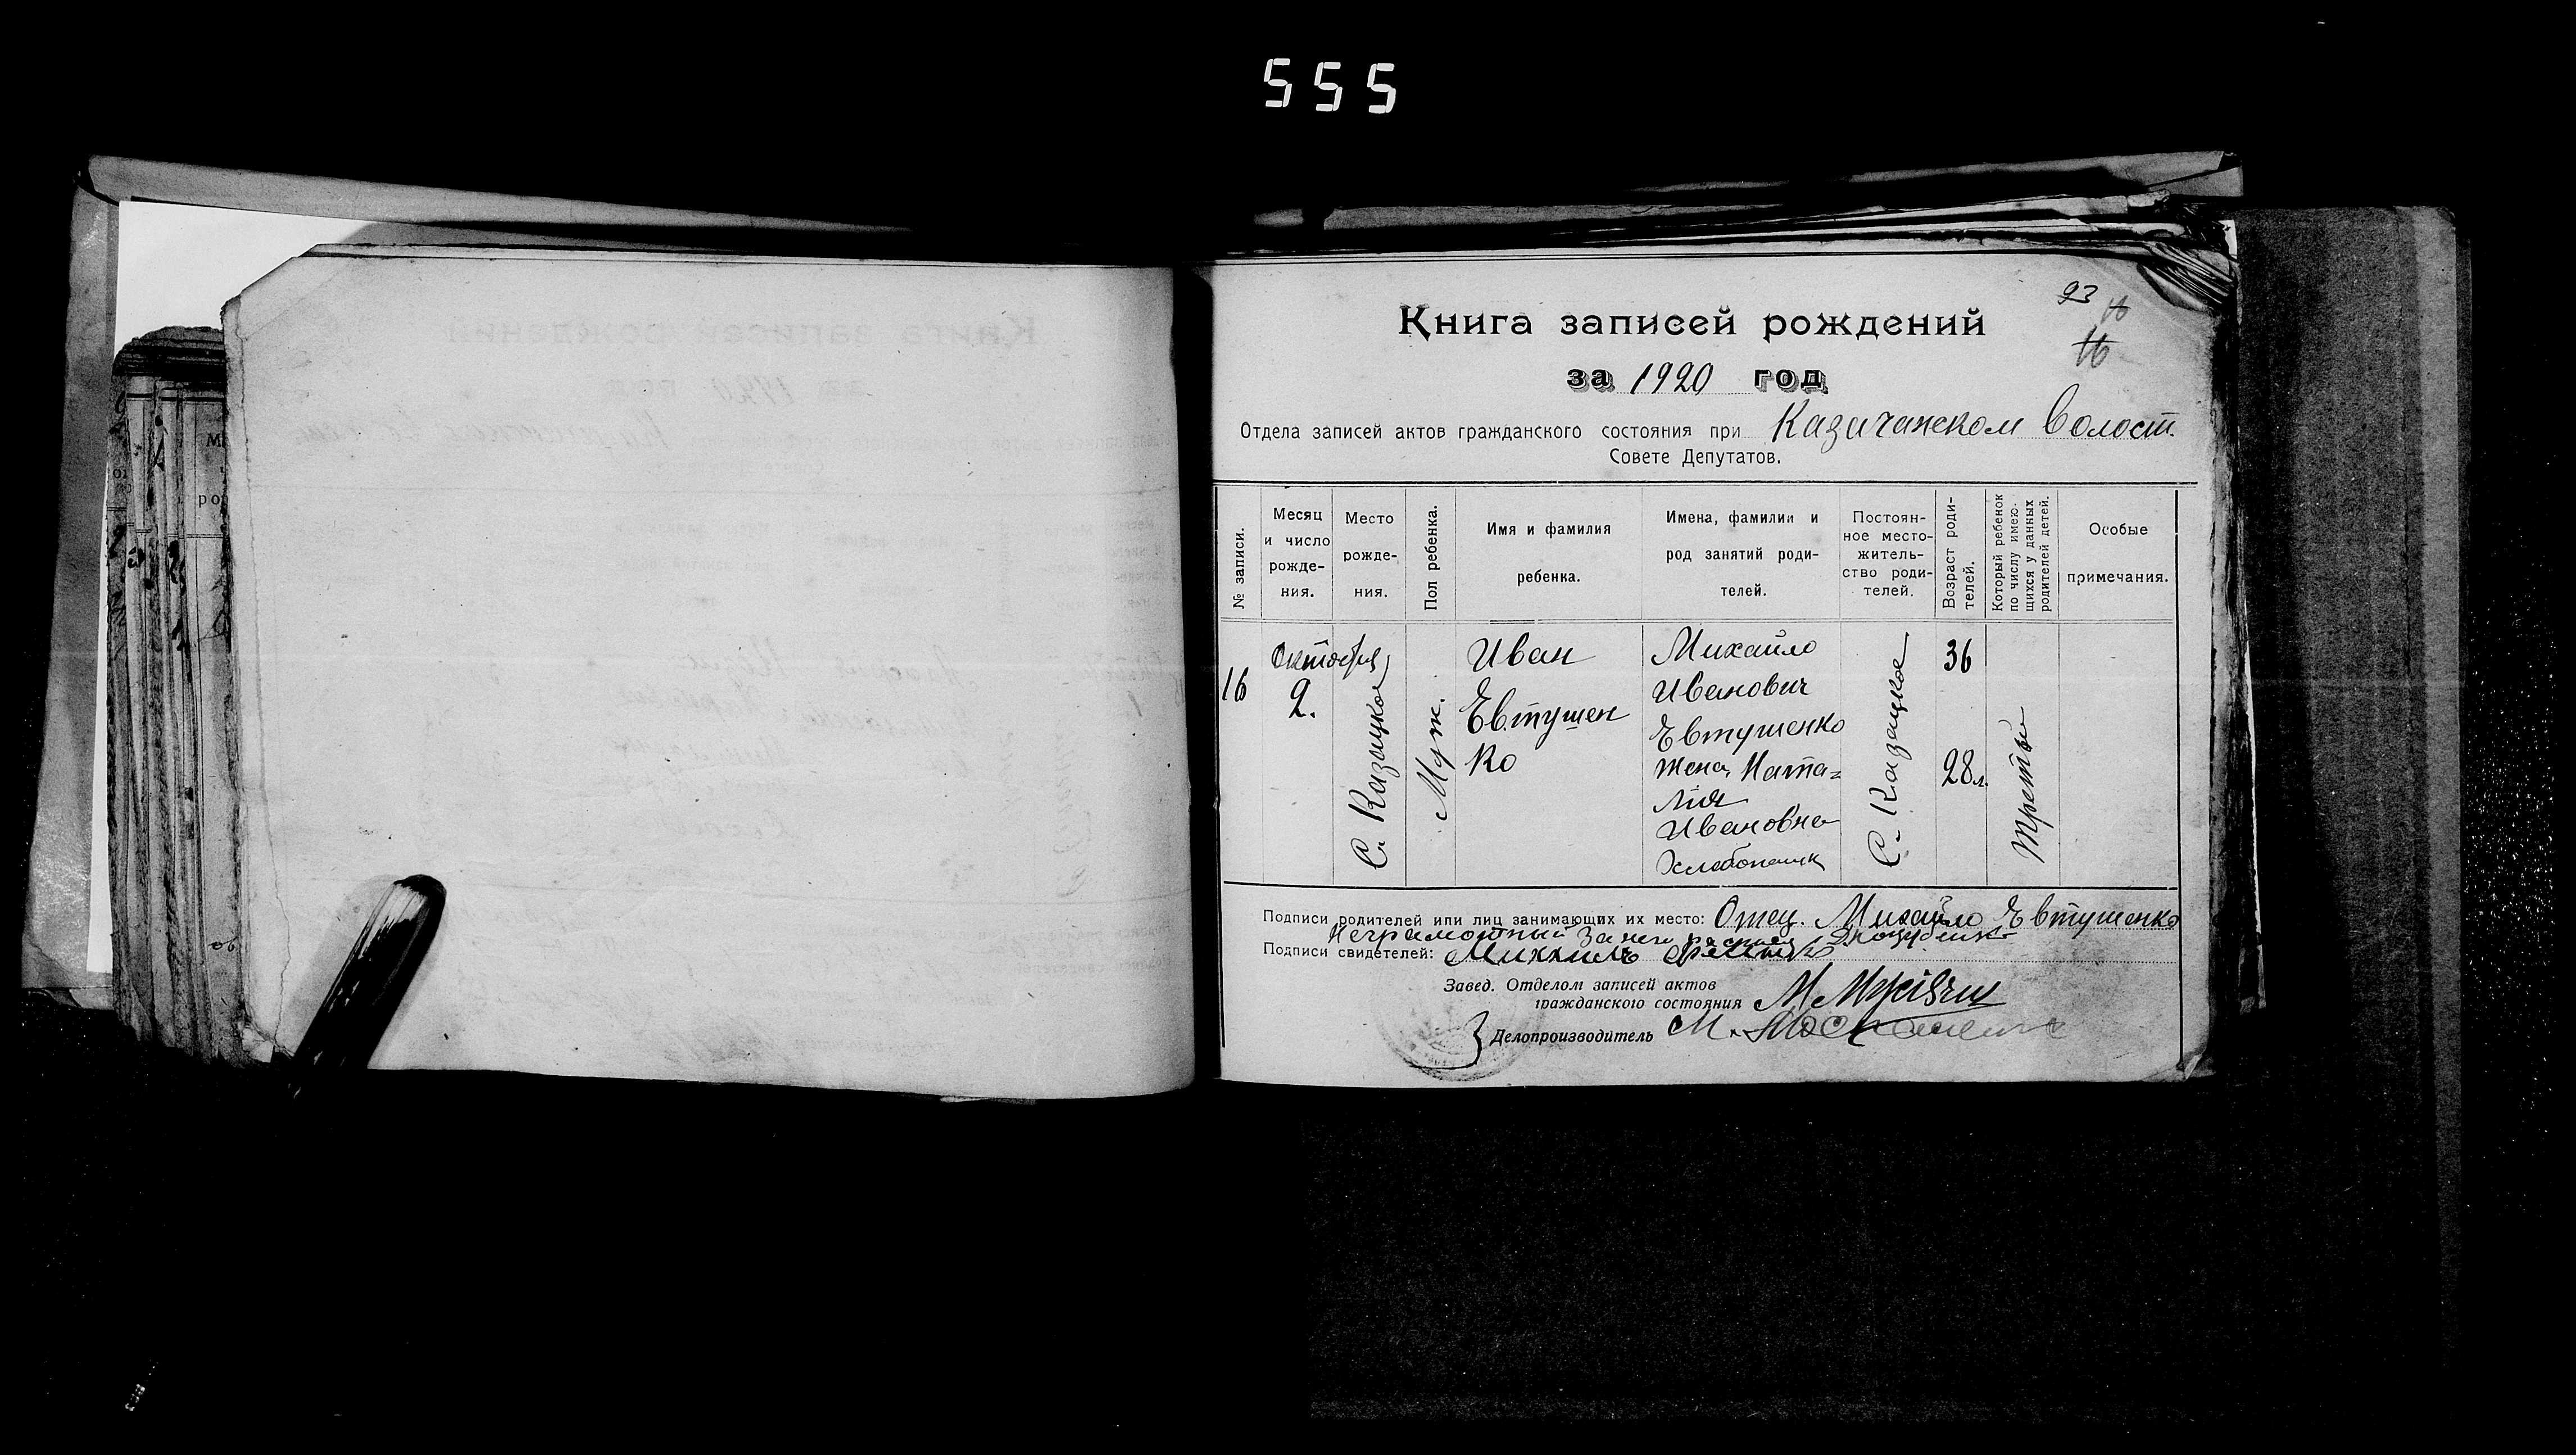 555
93
16
16
Книга записей рождений
за 1920 год
Отдела записей актов гражданского состояния при Казачанском Волост.
Совете Депутатов.
№ записи.
Месяц
и число
рожде-
ния.
Место
рожде-
ния.
Пол ребенка.
Имя и фамилия
ребенка.
Имена, фамилии и
род занятий роди-
телей.
Постоян-
ное место-
житель-
ство роди-
телей.
Возраст роди-
телей.
Который ребенок
по числу имею-
щихся у данных
родителей детей.
Особые
примечания.
16
Октобря
2.
С. Казацкое
Муж.
Иван
Евтушен
ко
Михайло
Иванович
Евтушенко
жена, Ната=
лия
Ивановна
Хлебопашц
С. Казацкое
36
28 л.
Третый
Подписи родителей или лиц занимающих их место: Отец. Михайло Евтушенко
Неграмотный За него
Подписи свидетелей: Михаилъ
Завед. Отделом записей актов
гражданского состояния
Делопроизводитель М. Москаленко